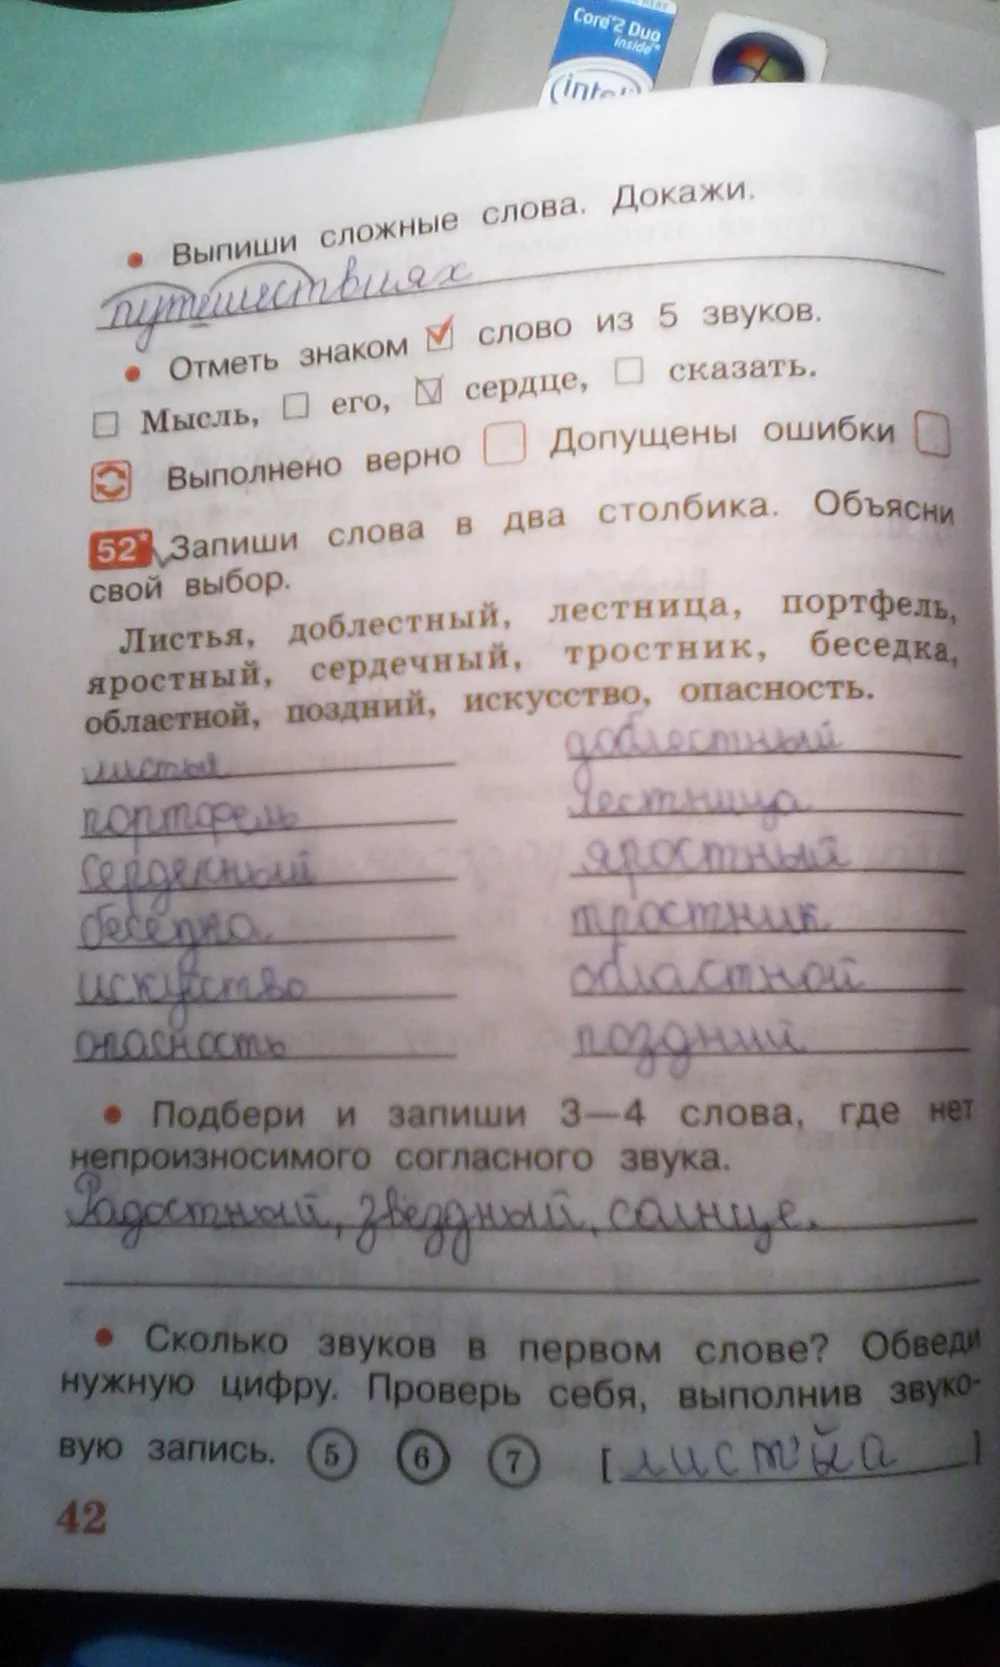 Core™2 Duo
inside™
(intel)
• Выпиши сложные слова. Докажи.
путешествиях
• Отметь знаком ☑ слово из 5 звуков.
☐ Мысль, ☐ его, ☑ сердце, ☐ сказать.
Выполнено верно ☐ Допущены ошибки ☐
52* Запиши слова в два столбика. Объясни
свой выбор.
Листья, доблестный, лестница, портфель,
яростный, сердечный, тростник, беседка,
областной, поздний, искусство, опасность.
листья доблестный
портфель лестница
сердечный яростный
беседка тростник
искусство областной
опасность поздний
• Подбери и запиши 3—4 слова, где нет
непроизносимого согласного звука.
Радостный, звёздный, солнце.
• Сколько звуков в первом слове? Обведи
нужную цифру. Проверь себя, выполнив звуко-
вую запись. 5 6 7 [лист'йа]
42